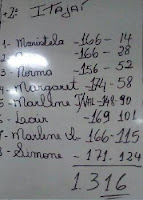 2= ITAJAÍ
1- Maristela -166- 14
-166- 28
3- Norma - 156 - 52
4- Margaret 174-58
5- Marlene 148-90
6- Lacir - 169 101
7- Marlene 166-115
8- Simone - 171. 124
1.316